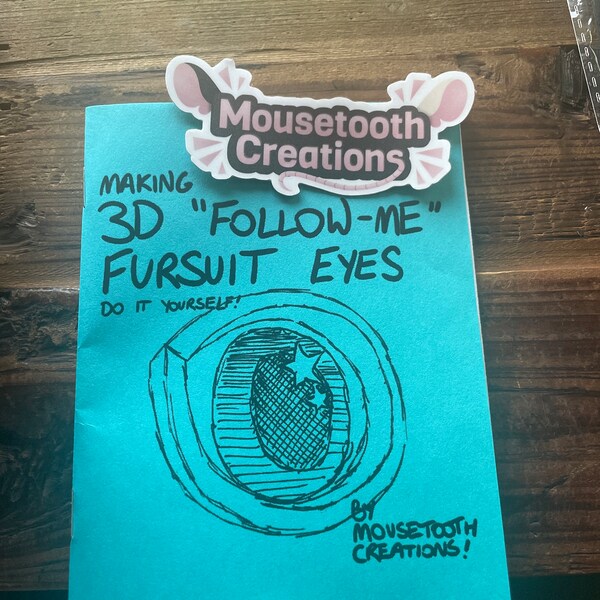 Mousetooth
Creations
MAKING
3D "FOLLOW-ME"
FURSUIT EYES
DO IT YOURSELF!
BY
MOUSETOOTH
CREATIONS!